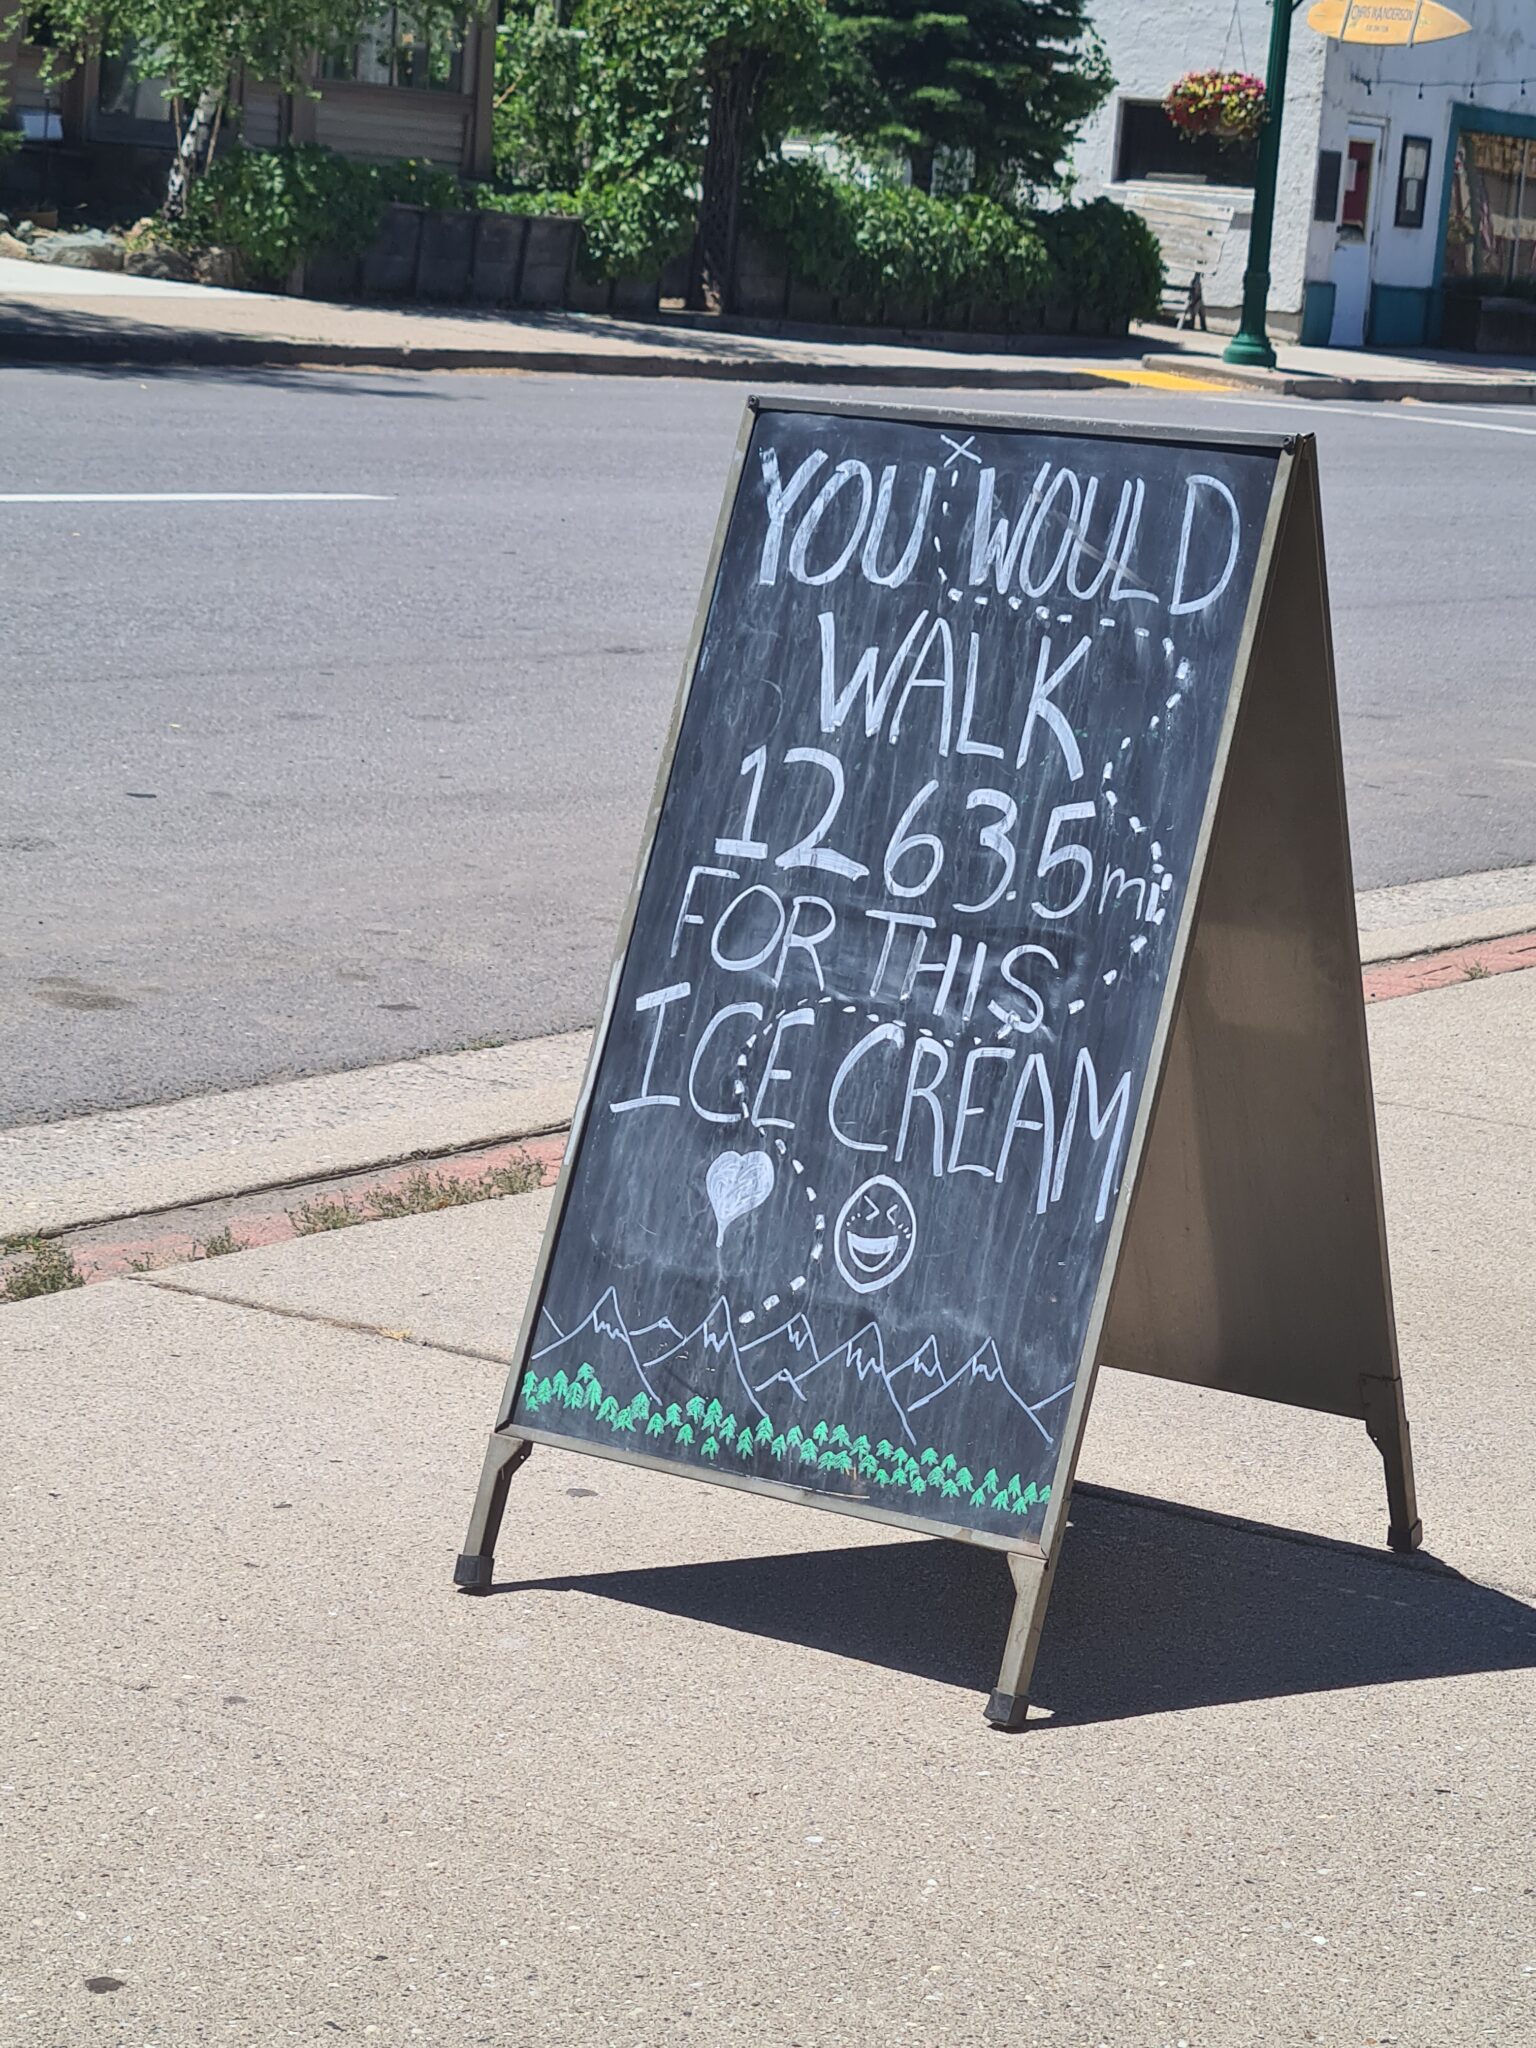 CHRIS W ANDERSON
YOU WOULD
WALK
1263.5mi
FOR THIS
ICE CREAM